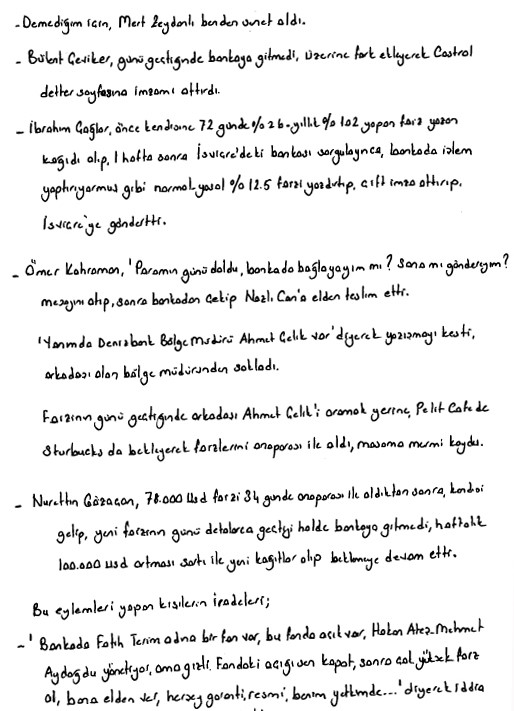 - Demediğim için, Mert Zeydanlı benden senet aldı.
- Bülent Çeviker, günü geçtiğinde bankaya gitmedi, üzerine fark ekleyerek Castrol
defter sayfasına imzamı attırdı.
- İbrahim Çağlar, önce kendisine 72 günde % 26 - yıllık % 102 yapan faiz yazan
kağıdı alıp, 1 hafta sonra İsviçre'deki bankası sorgulayınca, bankada işlem
yaptırıyormuş gibi normal yasal % 12.5 faizi yazdırtıp, çift imza attırıp,
İsviçre'ye gönderttti.
- Ömer Kahraman, 'Paramın günü doldu, bankada bağlayayım mı? Sana mı göndereyim?
mesajını atıp, sonra bankadan çekip Nazlı Can'a elden teslim etti.
'Yanımda Denizbank Bölge Müdürü Ahmet Çelik var' diyerek yazışmayı kesti,
arkadaşı olan bölge müdüründen sakladı.
Faizinin günü geçtiğinde arkadaşı Ahmet Çelik'i aramak yerine, Pelit Cafe de
Sturbucks da bekleyerek faizlerini anaparası ile aldı, masama mermi koydu.
- Nurettin Gözaçan, 78.000 usd faizi 34 günde anaparası ile aldıktan sonra, kendisi
gelip, yeni faizinin günü defalarca geçtiği halde bankaya gitmedi, haftalık
100.000 usd artması şartı ile yeni kağıtlar alıp beklemeye devam etti.
Bu eylemleri yapan kişilerin ifadeleri;
- ' Bankada Fatih Terim adına bir fon var, bu fonda açık var, Hakan Ateş - Mehmet
Aydoğdu yönetiyor, ama gizli. Fondaki açığı sen kapat, sonra çok yüksek faiz
al, bana elden ver, herşey garanti, resmi, benim yetkimde...' diyerek iddia